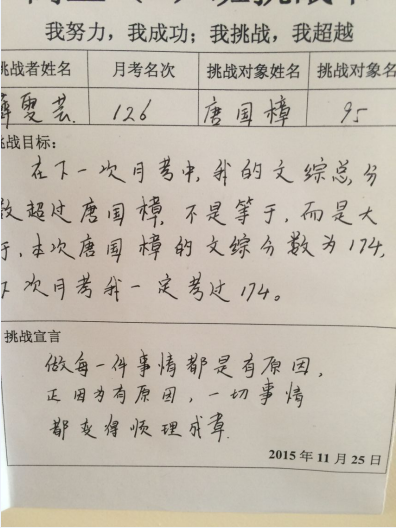 我努力，我成功；我挑战，我超越
挑战者姓名 月考名次 挑战对象姓名 挑战对象名
薛雯芸 126 唐国樟 95
挑战目标：
在下一次月考中，我的文综总分
数超过唐国樟，不是等于，而是大
于，本次唐国樟的文综分数为174，
下次月考我一定考过174。
挑战宣言
做每一件事情都是有原因，
正因为有原因，一切事情
都变得顺理成章.
2015年11月25日